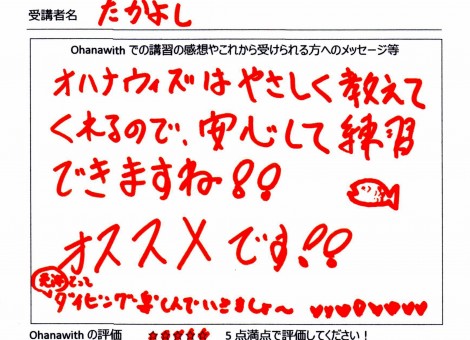 受講者名 たかよし
Ohanawith での講習の感想やこれから受けられる方へのメッセージ等
オハナウィズはやさしく教えて
くれるので、安心して練習
できますね!!
オススメです!!
とって
ダイビング楽しんでいきましょ〜
Ohanawith の評価 ★★★★★ 5 点満点で評価してください!